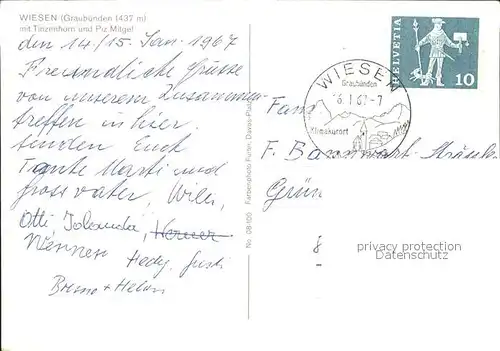 WIESEN (Graubünden (437 m)
mit Tinzenhorn und Piz Mitgel
den 14./15. Jan. 1967
Freundliche Grüsse
von unserem Zusammen-
treffen in hier.
senden Euch
Tante Marti und
Grossvater, Willi,
Otti, Jolanda, Werner
Hedy, Gusti
Bruno + Helen
No. 08-100 Farbenphoto Furter, Davos-Platz
WIESEN
Graubünden
16. 1. 67 - 7
Klimakurort
HELVETIA
10
Fam.
F. Bannwart
Grün
8
privacy protection
Datenschutz